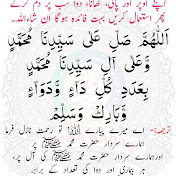 اپنے اوپر اور پانی، کھانا، دوا سب پر دم کرکے
پھر استعمال کریں بہت فائدہ ہوگا ان شاءاللہ۔
اَللّٰهُمَّ صَلِّ عَلٰى سَيِّدِنَا مُحَمَّدٍ
وَّعَلٰى اٰلِ سَيِّدِنَا مُحَمَّدٍ
بِعَدَدِ كُلِّ دَآءٍ وَّدَوَآءٍ
وَّبَارِكْ وَسَلِّمْ
ترجمہ:۔ اے میرے پیارے اللہ تو رحمت نازل فرما
ہمارے سردار حضرت محمد ﷺ پر
اور ہمارے سردار حضرت محمد ﷺ کی آل پر،
ہر بیماری اور دوا کی تعداد کے برابر